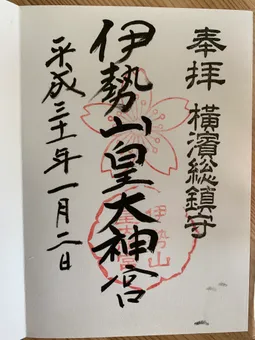 奉拝 橫濱総鎮守
伊勢山皇大神宮
平成三十一年一月二日
伊勢山